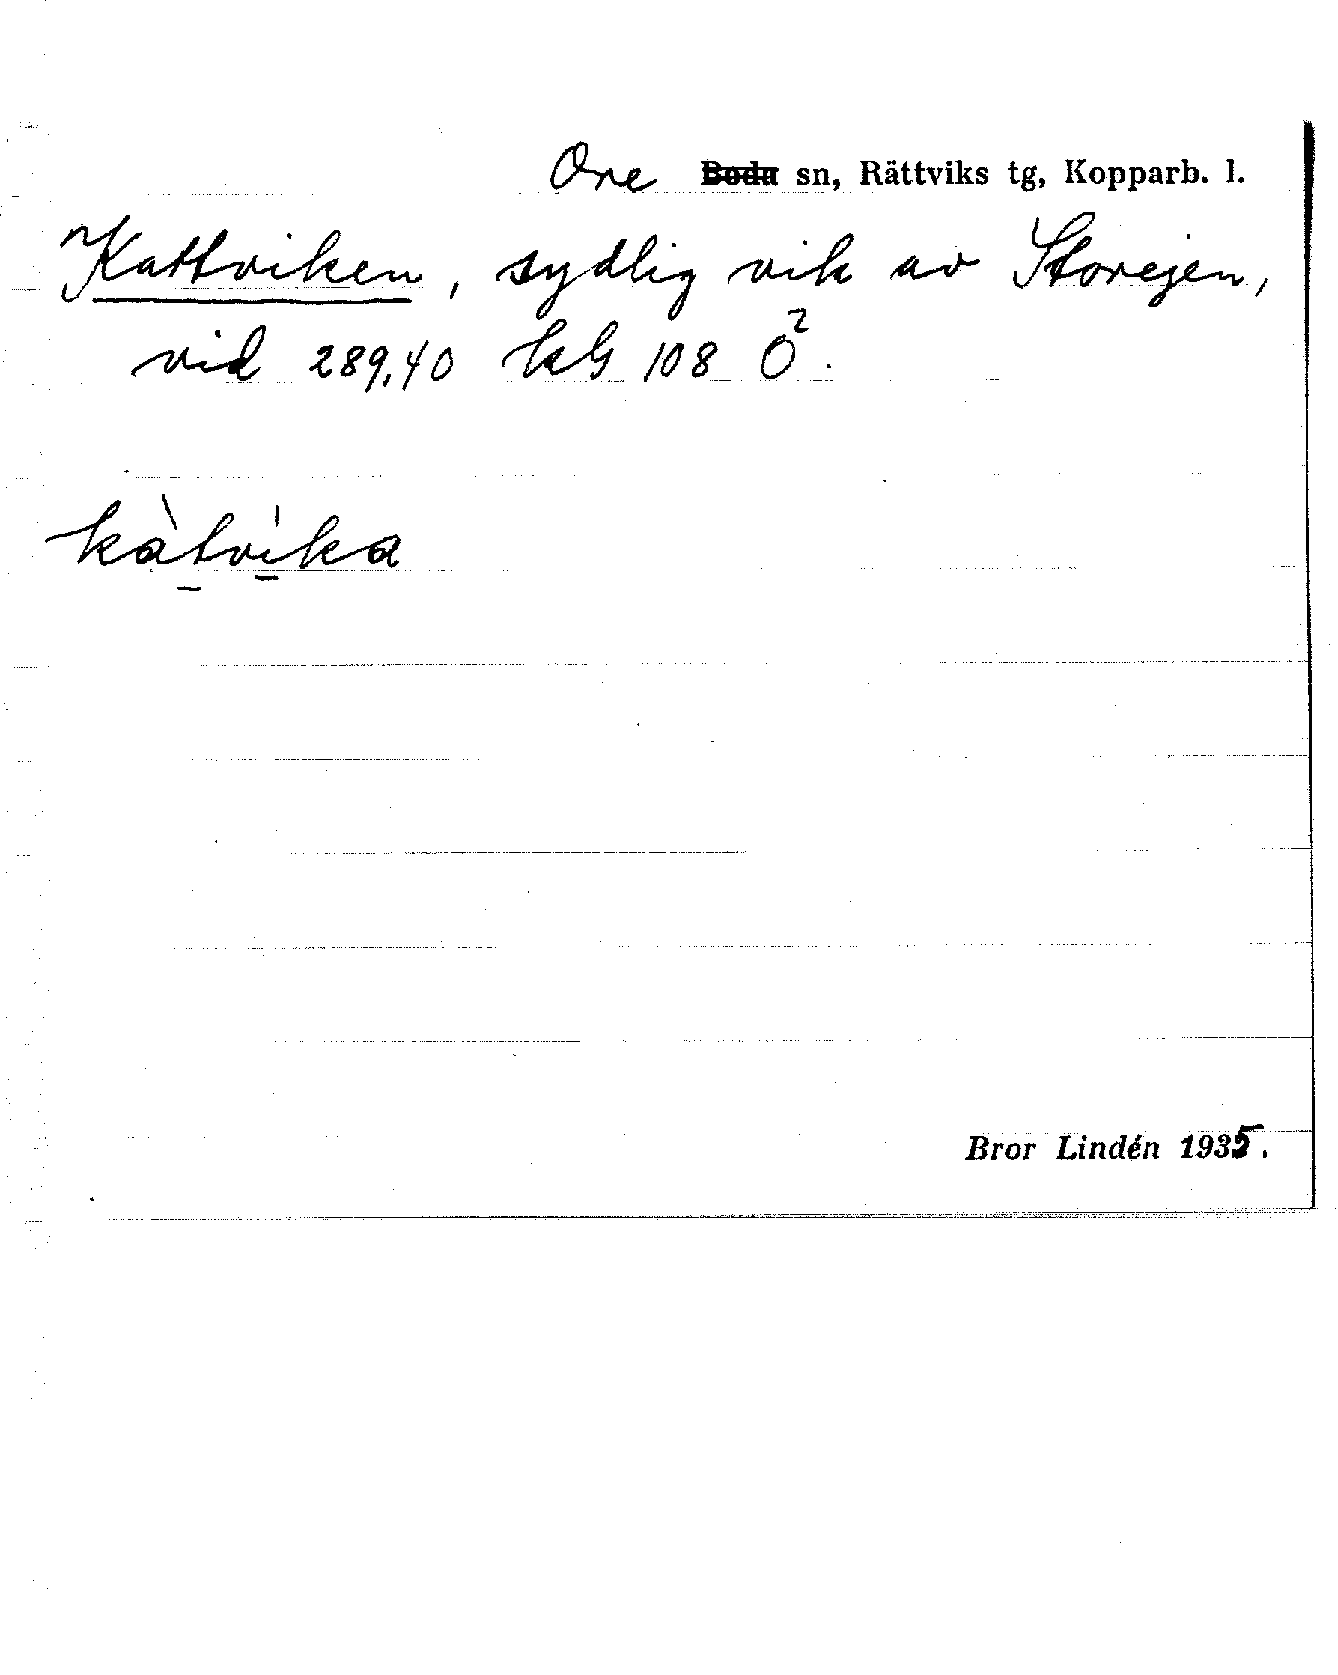 Ore ~~Boda~~ sn, Rättviks tg, Kopparb. l.
Kattviken, sydlig vik av Storejen,
vid 289,40 kbl 108 Ö².
kàtvíka
Bror Lindén 1935.